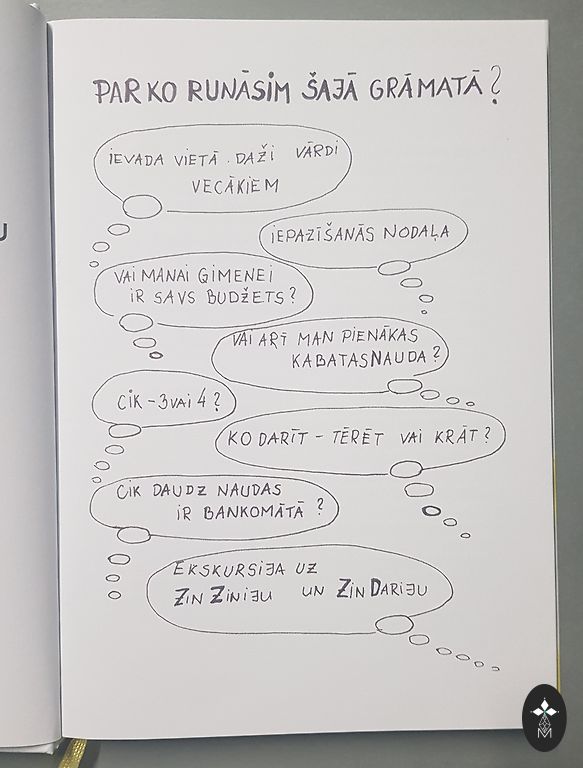 PAR KO RUNĀSIM ŠAJĀ GRĀMATĀ?
IEVADA VIETĀ. DAŽI VĀRDI
VECĀKIEM
IEPAZĪŠANĀS NODAĻA
VAI MANAI ĢIMENEI
IR SAVS BUDŽETS?
VAI ARĪ MAN PIENĀKAS
KABATASNAUDA?
CIK - 3 VAI 4?
KO DARĪT - TĒRĒT VAI KRĀT?
CIK DAUDZ NAUDAS
IR BANKOMĀTĀ?
EKSKURSIJA UZ
ZINZINIJU UN ZINDARIJU
U
M